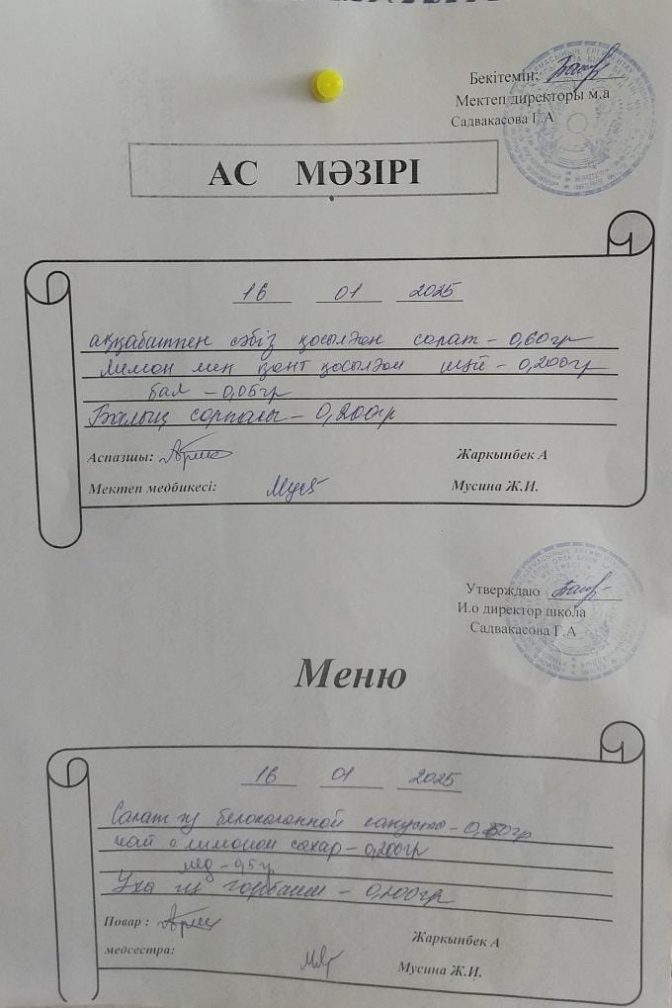 Бекітемін:
Мектеп директоры м.а
Садвакасова Г.А
АС МӘЗІРІ
16 01 2025
аққабатпен сәбіз қосылған салат - 0,60гр
Лимон мен қант қосылған шәй - 0,200гр
бал - 0,05гр
Балық сорпасы - 0,200гр
Аспазшы:
Жаркынбек А
Мектеп медбикесі:
Мусина Ж.И.
Утверждаю
И.о директор школа
Садвакасова Г.А
Меню
16 01 2025
Салат из белокочанной капусты - 0,60гр
чай с лимоном сахар - 0,200гр
мёд - 0,5гр
Уха из горбуши - 0,200гр
Повар :
Жаркынбек А
медсестра:
Мусина Ж.И.